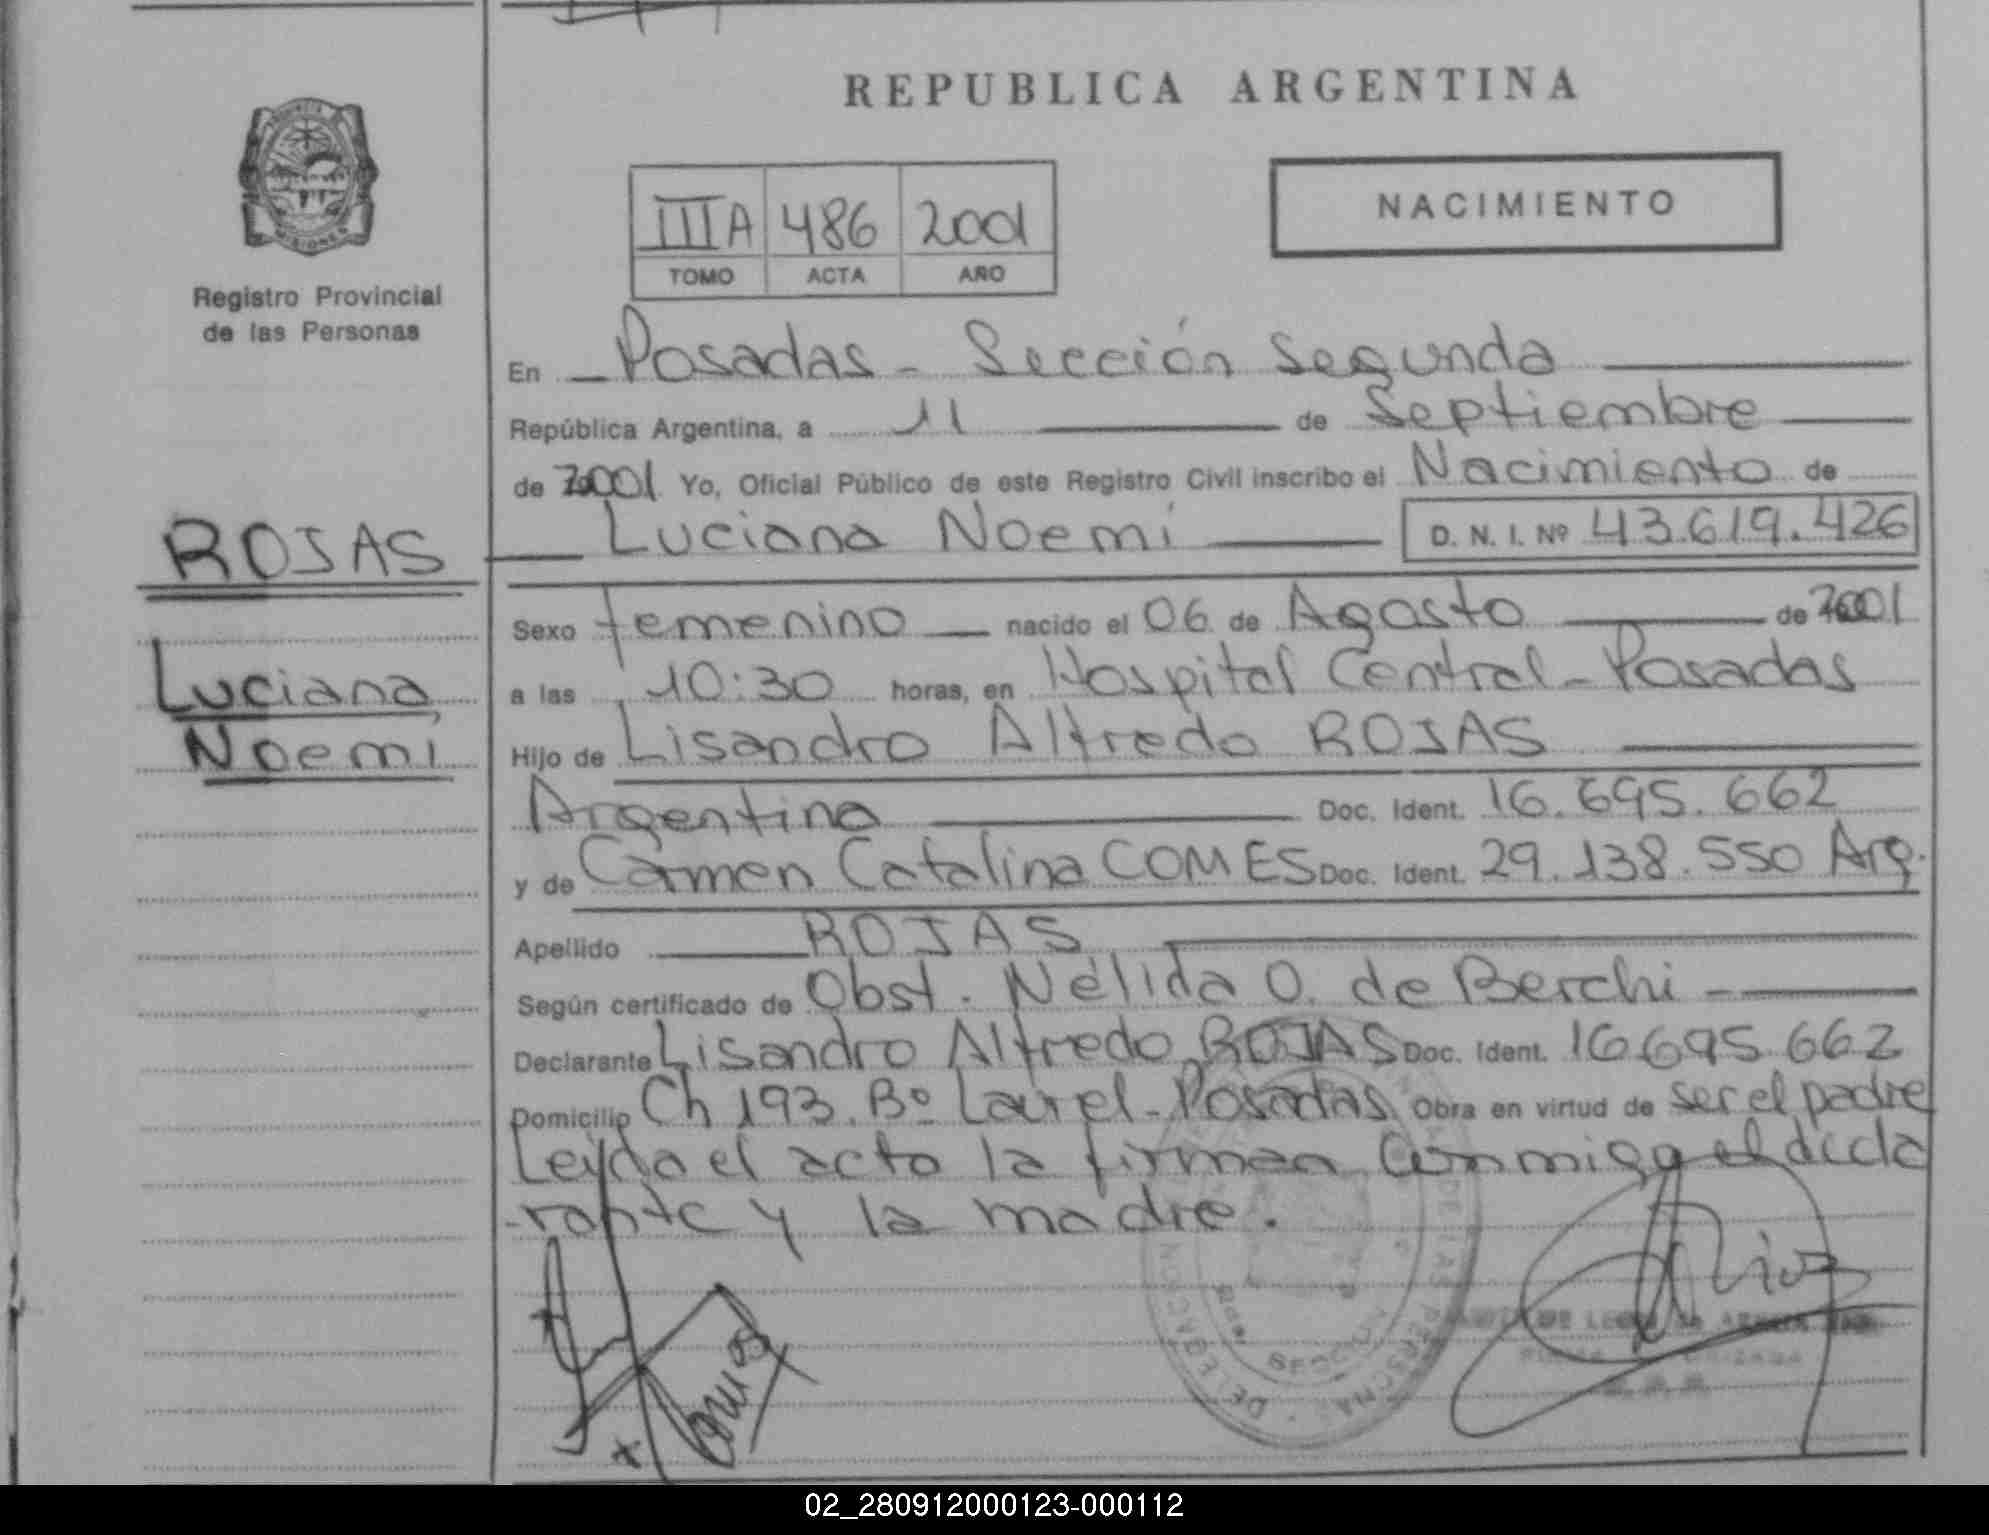 REPUBLICA ARGENTINA
PROVINCIA
MISIONES
Registro Provincial
de las Personas
IIIA 486 2001
TOMO ACTA AÑO
NACIMIENTO
En Posadas - Sección Segunda
República Argentina, a 11 de Septiembre
de 2001 Yo, Oficial Público de este Registro Civil inscribo el Nacimiento de
Luciana Noemí D. N. I. Nº 43.619.426
ROJAS
Luciana
Noemi
Sexo femenino nacido el 06 de Agosto de 2001
a las 10:30 horas, en Hospital Central - Posadas
Hijo de Lisandro Alfredo ROJAS
Argentina Doc. Ident. 16.695.662
y de Carmen Catalina COMES Doc. Ident. 29.138.550 Arg.
Apellido ROJAS
Según certificado de Obst. Nélida O. de Berchi
Declarante Lisandro Alfredo ROJAS Doc. Ident. 16.695.662
Domicilio Ch 193. Bº Laurel - Posadas Obra en virtud de ser el padre
Leýda el acto la firman Conmigo el decla
-rante y la madre.
02_280912000123-000112